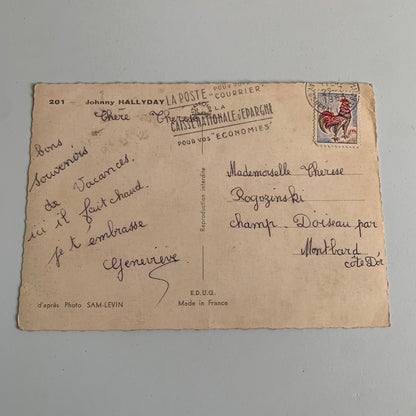 201 - Johnny HALLYDAY
LA POSTE POUR VOS "COURRIER"
LA
CAISSE NATIONALE D'EPARGNE
POUR VOS "ECONOMIES"
Chère Therese
bons
souvenirs
de Vacances.
ici il fait chaud.
je t'embrasse
Geneviève
Reproduction interdite
Mademoiselle Therese
Rogozinski
champ. D'oiseau par
Montbard
côte D'or
d'après Photo SAM-LEVIN
E.D.U.G.
Made in France